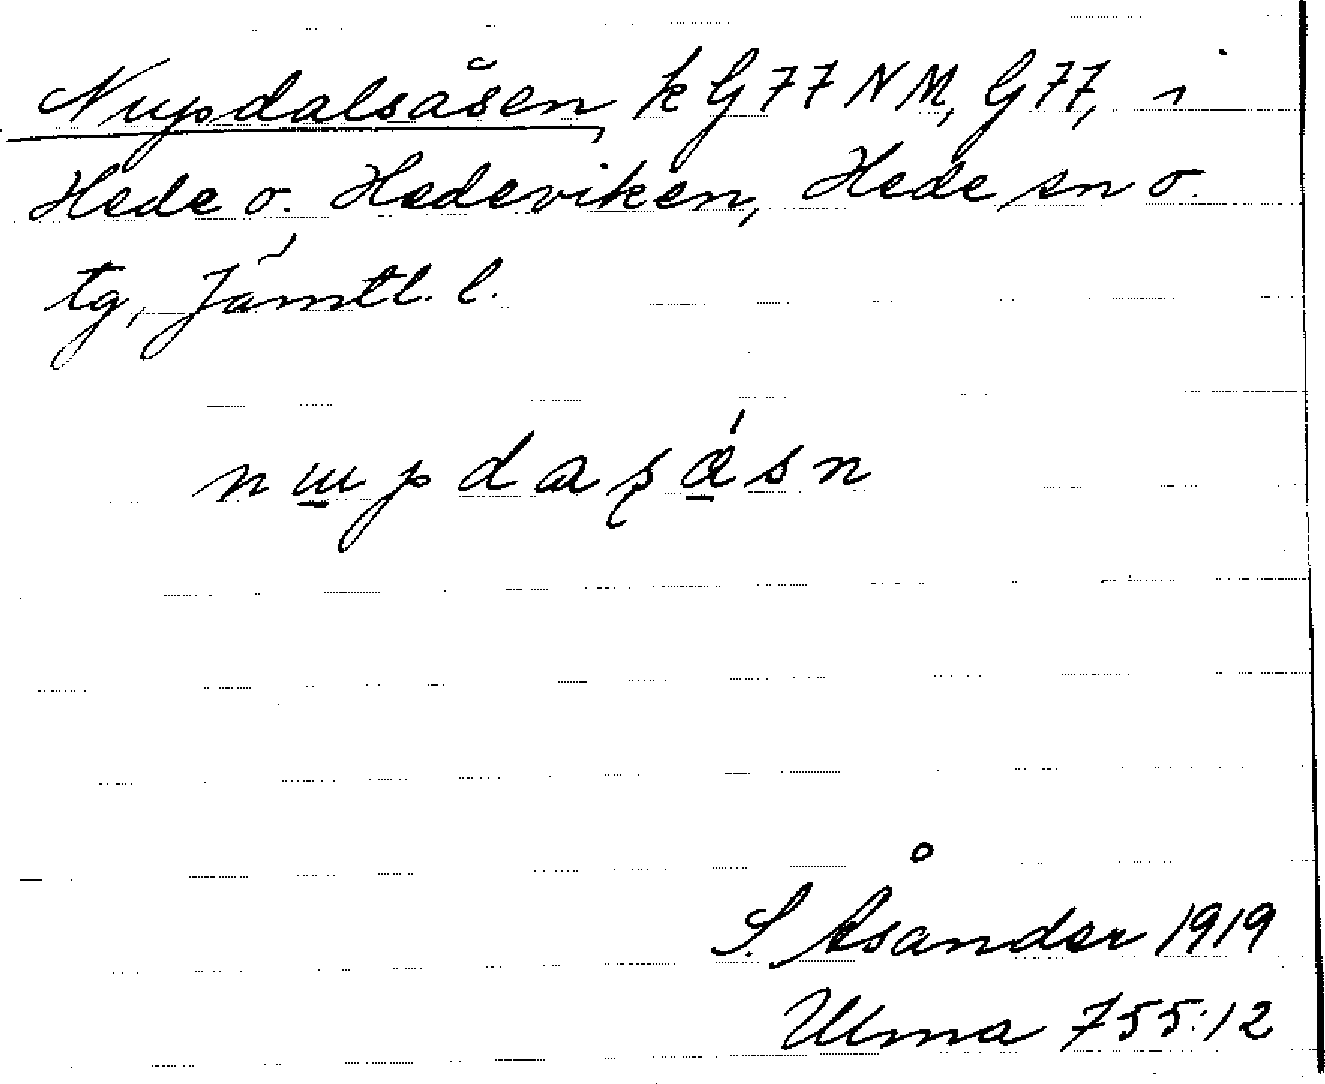 Nupdalsåsen, k G 77 N M, G 77, i
Hede o. Hedeviken, Hede sn o.
tg, Jämtl. l.
nɯpdaʂásn
S. Åsander 1919
Ulma 755:12